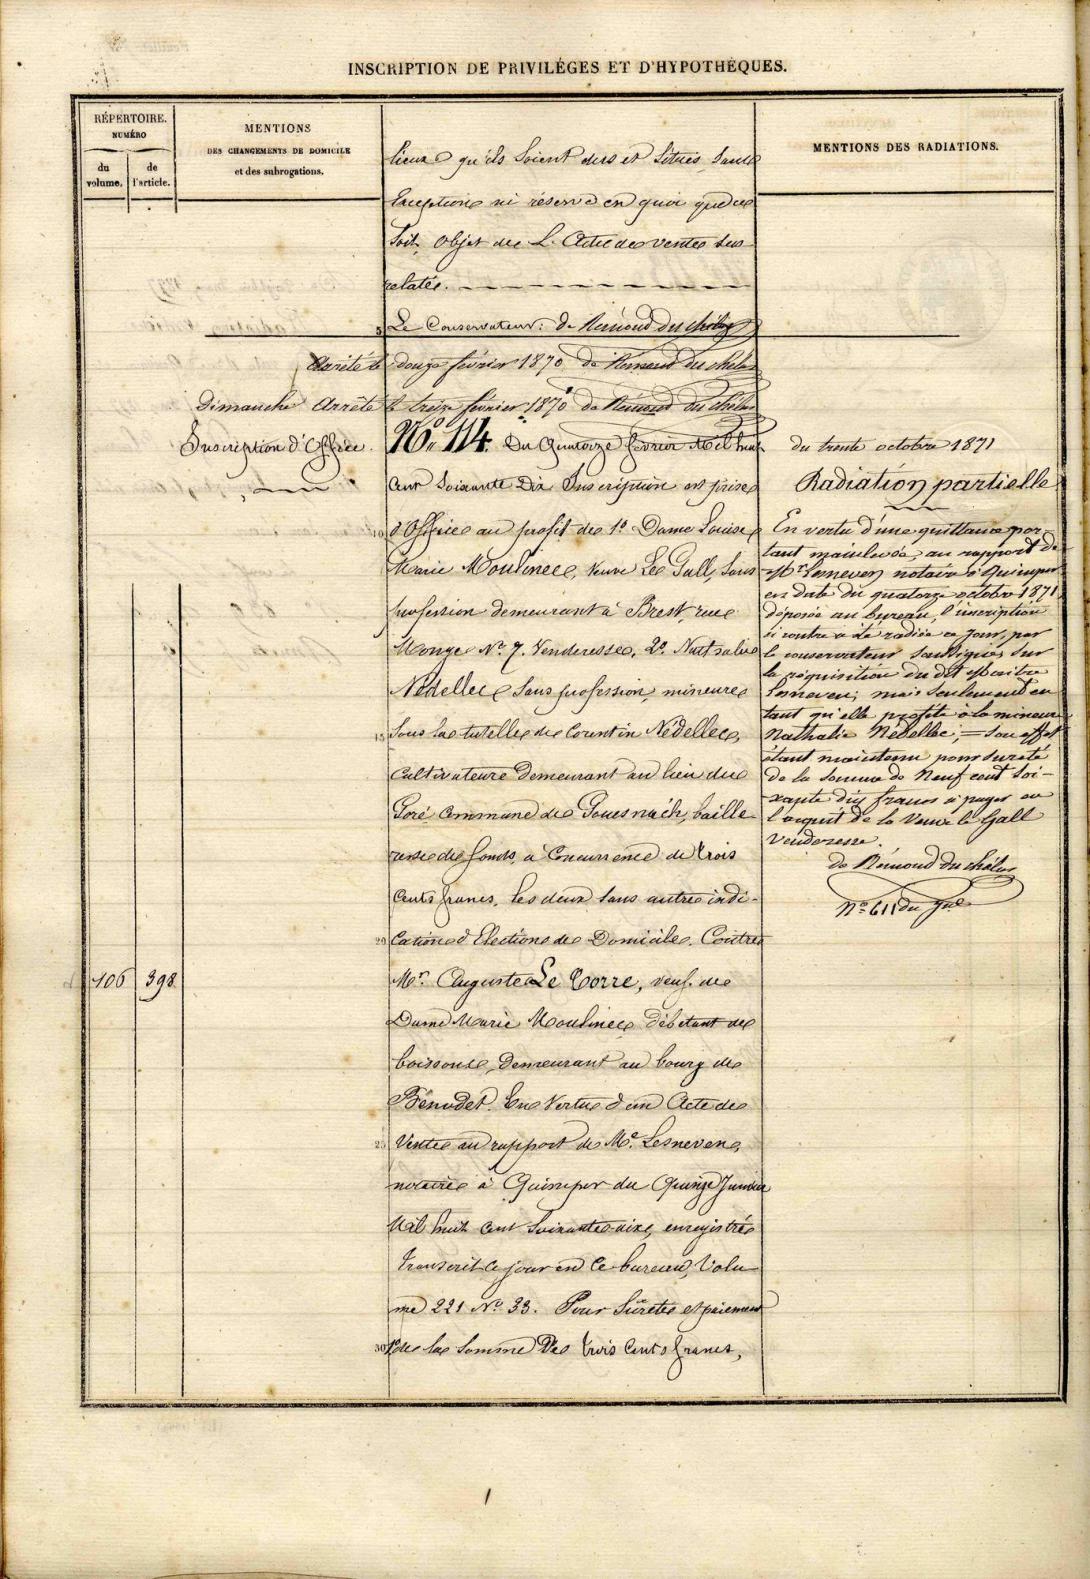 INSCRIPTION DE PRIVILÉGES ET D'HYPOTHÈQUES.
RÉPERTOIRE.
NUMÉRO
du volume.
de l'article.
MENTIONS
DES CHANGEMENTS DE DOMICILE
et des subrogations.
MENTIONS DES RADIATIONS.
lieux qu'ils soient dus et situés, sans
Exception ni réserve en quoi que ce
Soit, objet de l'Acte de vente sus
relaté.
5
Le Conservateur: de Rémond du Chélas
Arrêté le douze février 1870 de Rémond du Chélas
Dimanche Arrêté le treize février 1870 de Rémond du Chélas
Inscription d'Office.
No. 114. Du Quatorze février Mil huit
Cent Soixante Dix Inscription est prise
10
d'Office au profit de 1o. Dame Louise
Marie Moulinec, Veuve Le Gall, Sans
profession demeurant à Brest, rue
Monge No. 7. Venderesse, 2o. Nathalie
Nédellec Sans profession, mineure
15
Sous la tutelle de Corentin Nédellec,
Cultivateur Demeurant au lieu du
Goré Commune de Gouesnach, baille
resse de fonds, à Concurrence de trois
Cents francs, les deux sans autre indi-
20
cation d'Election de Domicile. Contre
106
398
Mr. Auguste Le Torre, veuf de
Dame Marie Moulinec débitant de
boissons, Demeurant au bourg de
Bénodet. En Vertu d'un Acte de
25
Vente au rapport de Me. Lesneven,
notaire à Quimper du Quinze Janvier
Mil huit cent soixante-dix, enregistré
transcrit ce jour en ce bureau, Volu
me 221 No. 33. Pour Sûreté et paiement
30
1o de la Somme De trois Cents francs,
du trente octobre 1871
Radiation partielle
En vertu d'une quittance por-
tant mainlevée, au rapport de
Mr Lesneven notaire à Quimper
en date du quatorze octobre 1871
déposée au bureau, l'inscription
ci contre a été radiée ce jour, par
le conservateur soussigné, sur
la réquisition du dit Maître
Lesneven; mais seulement en
tant qu'elle profite à la mineure
Nathalie Nédellec; = son effet
étant maintenu pour sureté
de la somme de neuf cent soi-
xante dix francs à payer en
l'acquit de la Veuve le Gall
Venderesse.
de Rémond du Chélas
No 611 du